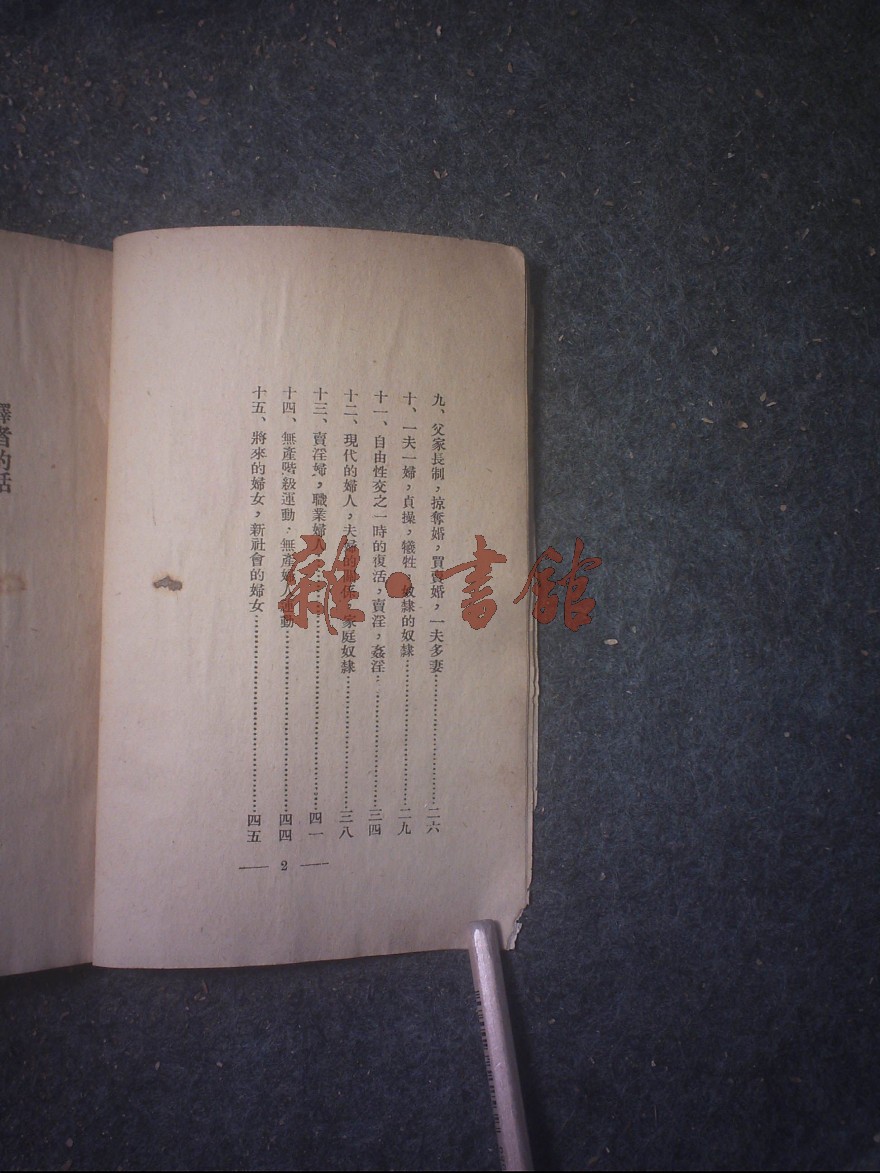 九、父家長制，掠奪婚，買賣婚，一夫多妻……二六
十、一夫一婦，貞操，犧牲 奴隸的奴隸……二九
十一、自由性交之一時的復活，賣淫，姦淫……三四
十二、現代的婦人，夫婦的關係，家庭奴隸……三八
十三、賣淫婦，職業婦人……四一
十四、無產階級運動，無產婦人運動……四四
十五、將來的婦女，新社會的婦女……四五
— 2 —
譯者的話
雜·書館